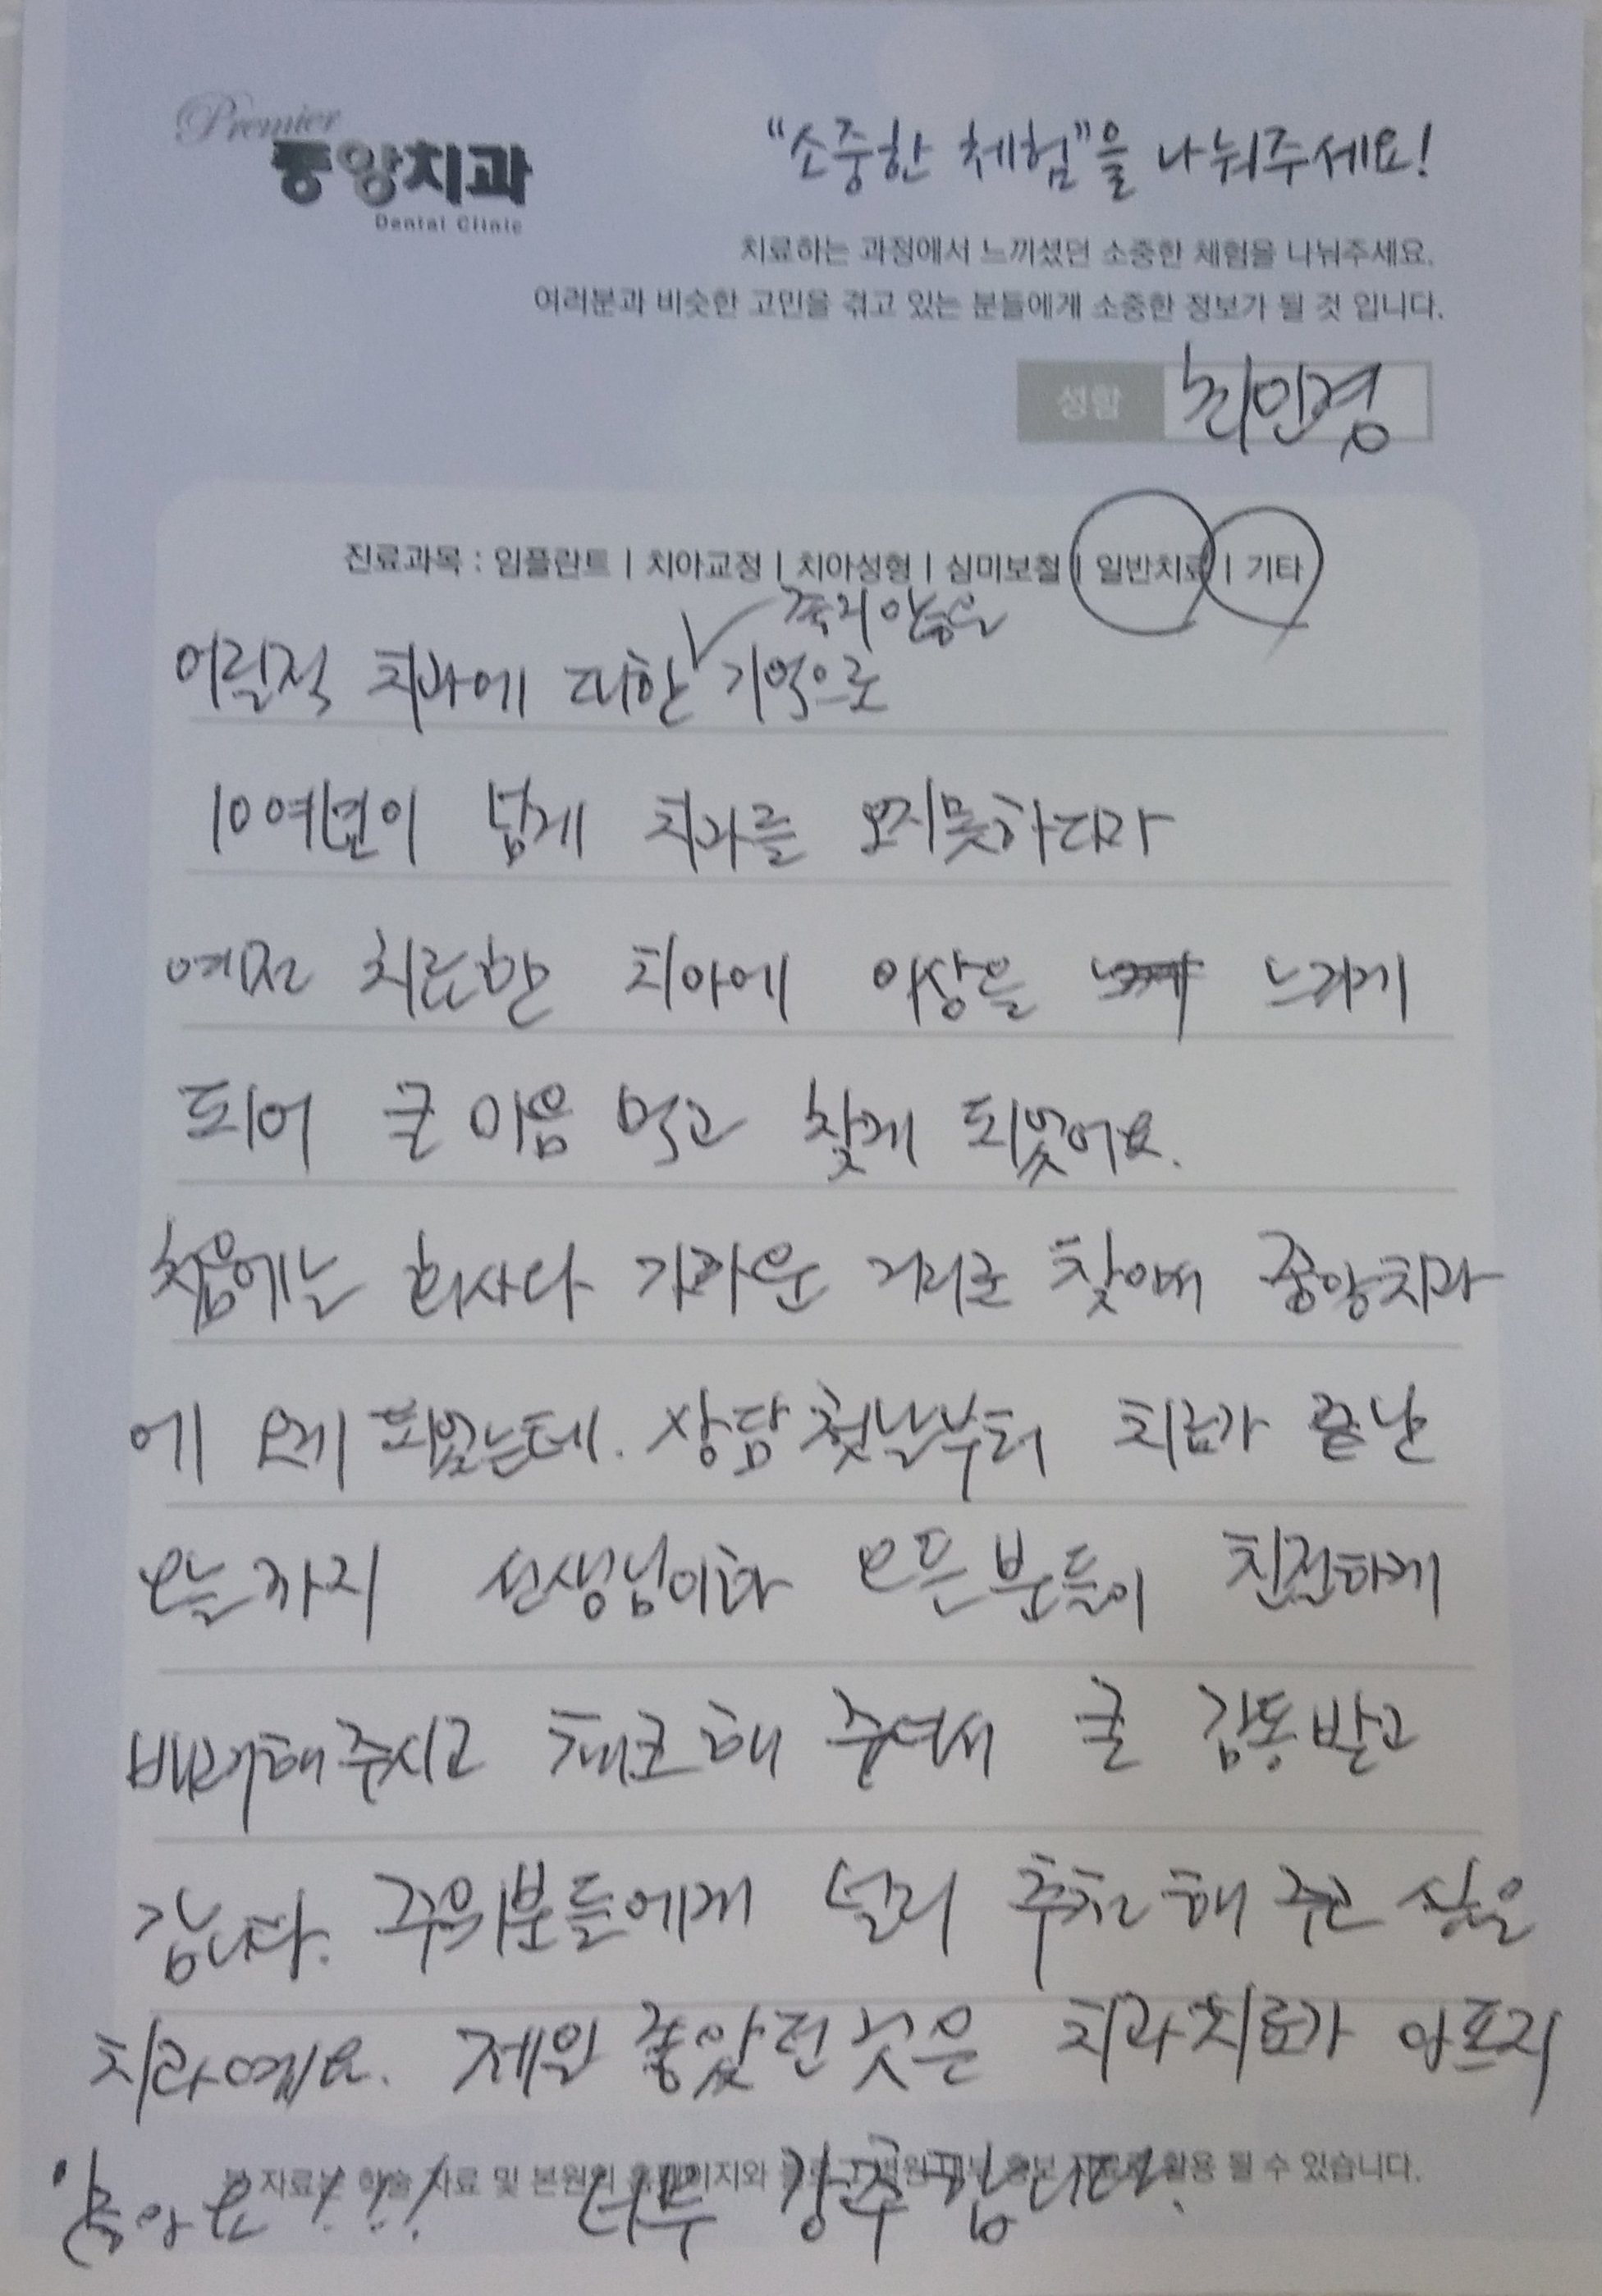 Premier
중앙치과
Dental Clinic
"소중한 체험"을 나눠주세요!
치료하는 과정에서 느끼셨던 소중한 체험을 나눠주세요.
여러분과 비슷한 고민을 겪고 있는 분들에게 소중한 정보가 될 것 입니다.
성함 최민경
진료과목 : 임플란트 | 치아교정 | 치아성형 | 심미보철 | 일반치료 | 기타
좋지않음은
어릴적 치과에 대한 기억으로
10여년이 넘게 치과를 오지못하다가
예전 치료한 치아에 이상을 느끼게
되어 큰 마음 먹고 찾게 되었어요.
처음에는 회사다 가까운 거리로 찾아서 중앙치과
에 오게 되었는데. 상담 첫날부터 치료가 끝난
오늘까지 선생님이하 모든분들이 친절하게
배려해주시고 체크해 주셔서 큰 감동받고
갑니다. 주위분들에게 널리 추천해 주고 싶은
치과예요. 제일 좋았던 것은 치과치료가 아프지
않아요!!! 너무 강추합니다.
자료는 학술 자료 및 본원의 홈페이지와 활용 될 수 있습니다.